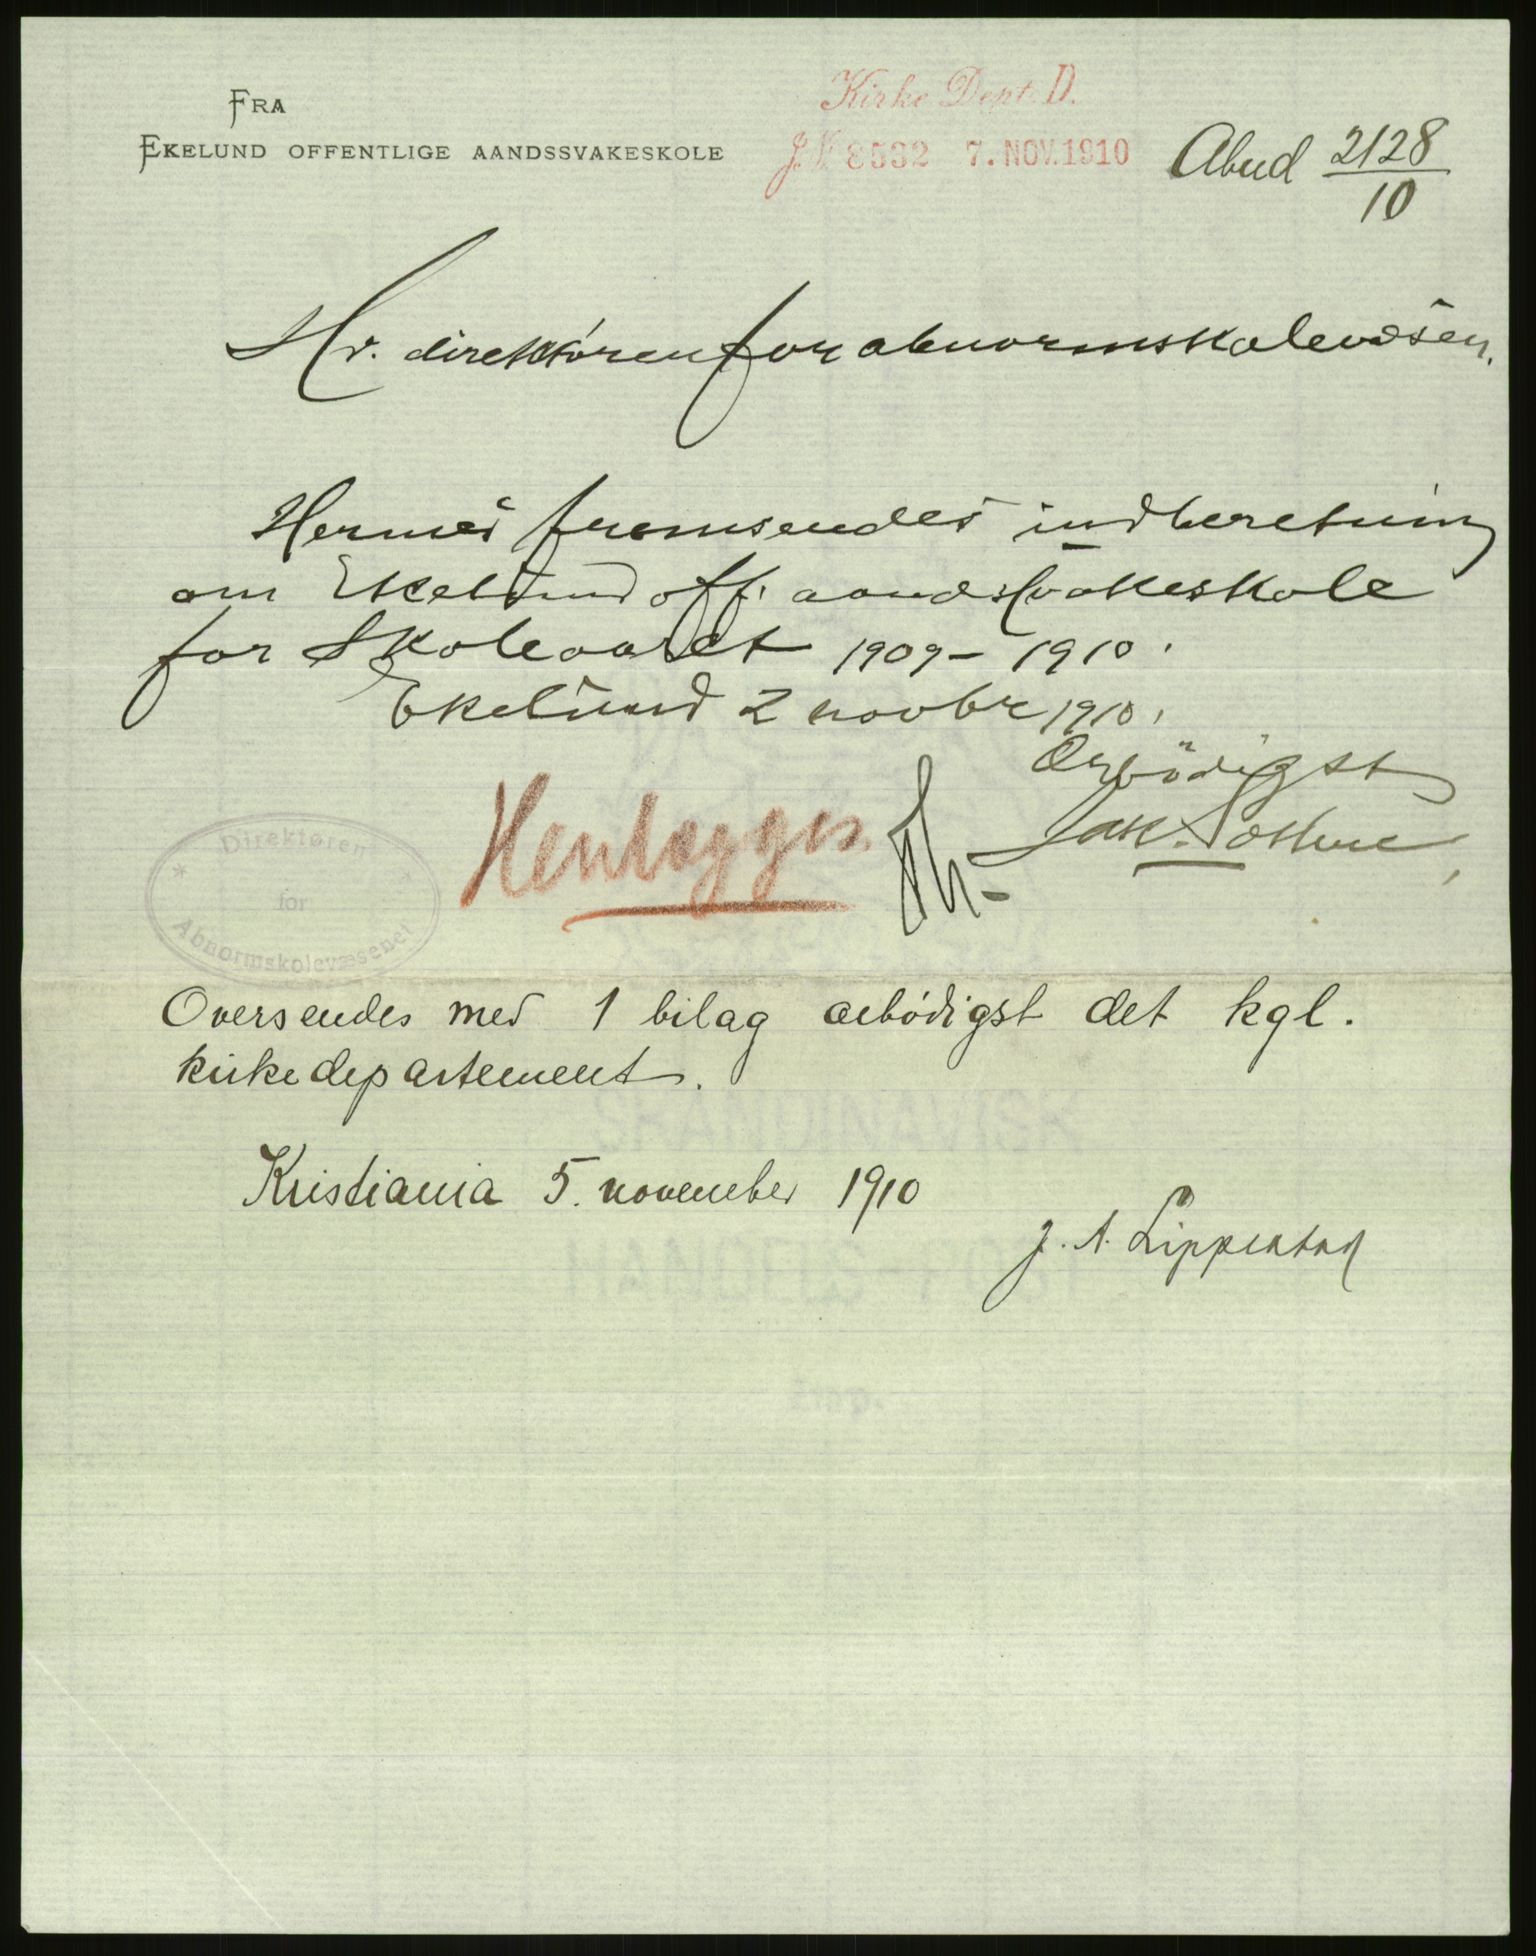 FRA
EKELUND OFFENTLIGE AANDSSVAKESKOLE
Kirke Dept. D.
J.N 8532 7. NOV. 1910
Abnd 2128
10
Hr. direktøren for abnormskolevæsen.
Hermed fremsendes indberetning
om Ekelund off. aandssvakeskole
for Skoleaaret 1909-1910.
Ekelund 2 novbr 1910.
Ærbödigst
Henlægges.
Direktøren
for
Abnormskolevæsenet
Oversendes med 1 bilag ærbödigst det kgl.
kirkedepartement.
Kristiania 5. november 1910
J. A. Lippestad
SKANDINAVISK